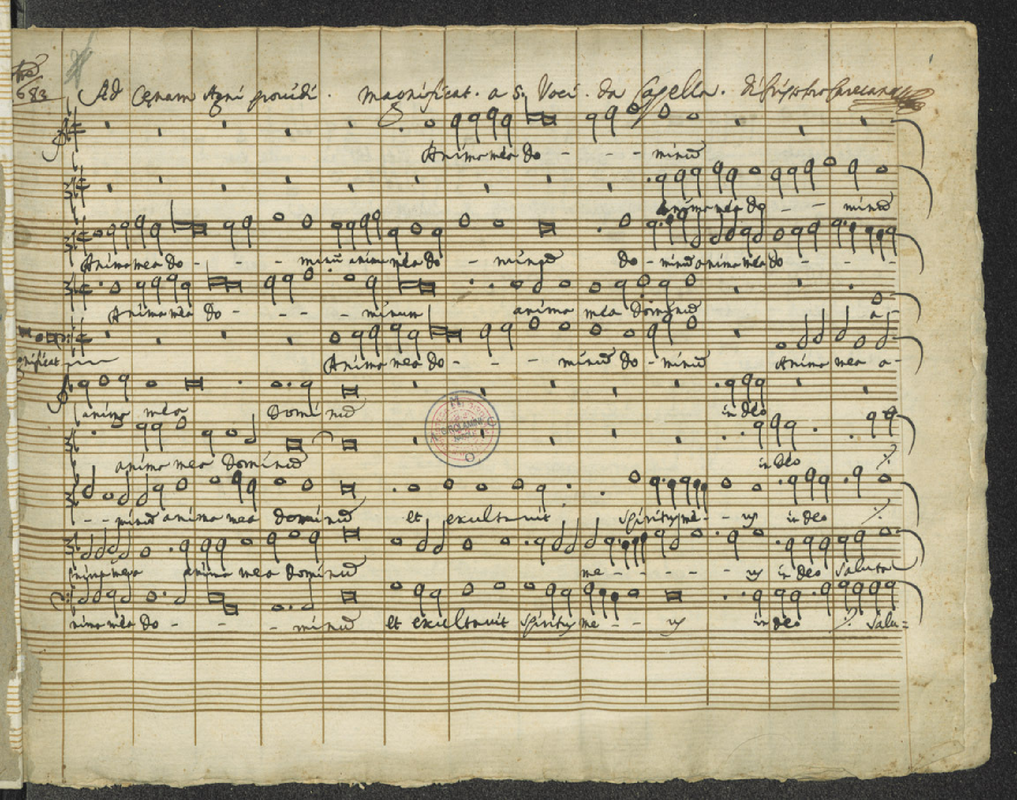 683
Ad Cęnam Agni providi. Magnificat. a 5. Voci. da Capella. di
Anima mea do - - - minũ
Anima mea do - - minũ
Anima mea do - - - minũ anima mea do - minũ do - minũ anima mea do - - -
Anima mea do - - - - minum anima mea Dominũ
a-
gnificat
Anima mea do - - - minũ do - minũ Anima mea a-
anima mea Dominũ in deo
anima mea Dominũ in deo
- - minũ anima mea dominũ et exultavit spiritus me - - us in deo
anima mea anima mea Dominũ me - - - - - us in deo saluta
nima mea do - - - minũ et exultavit spiritus me - - us in deo salu=